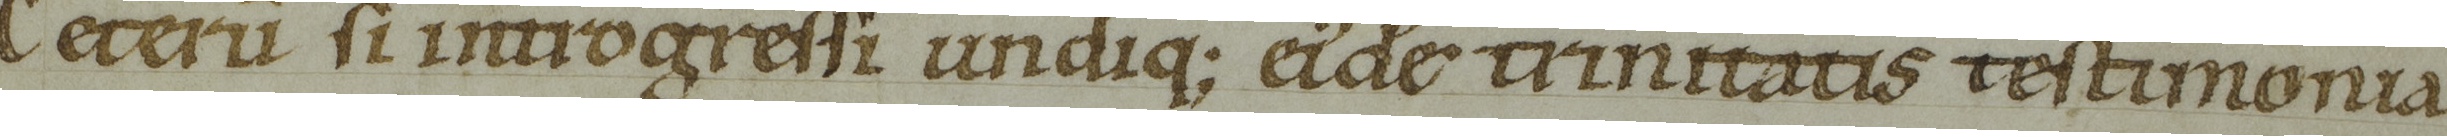 Ceterū si introgressi undiq; ei᷒de trinitatis testimonia